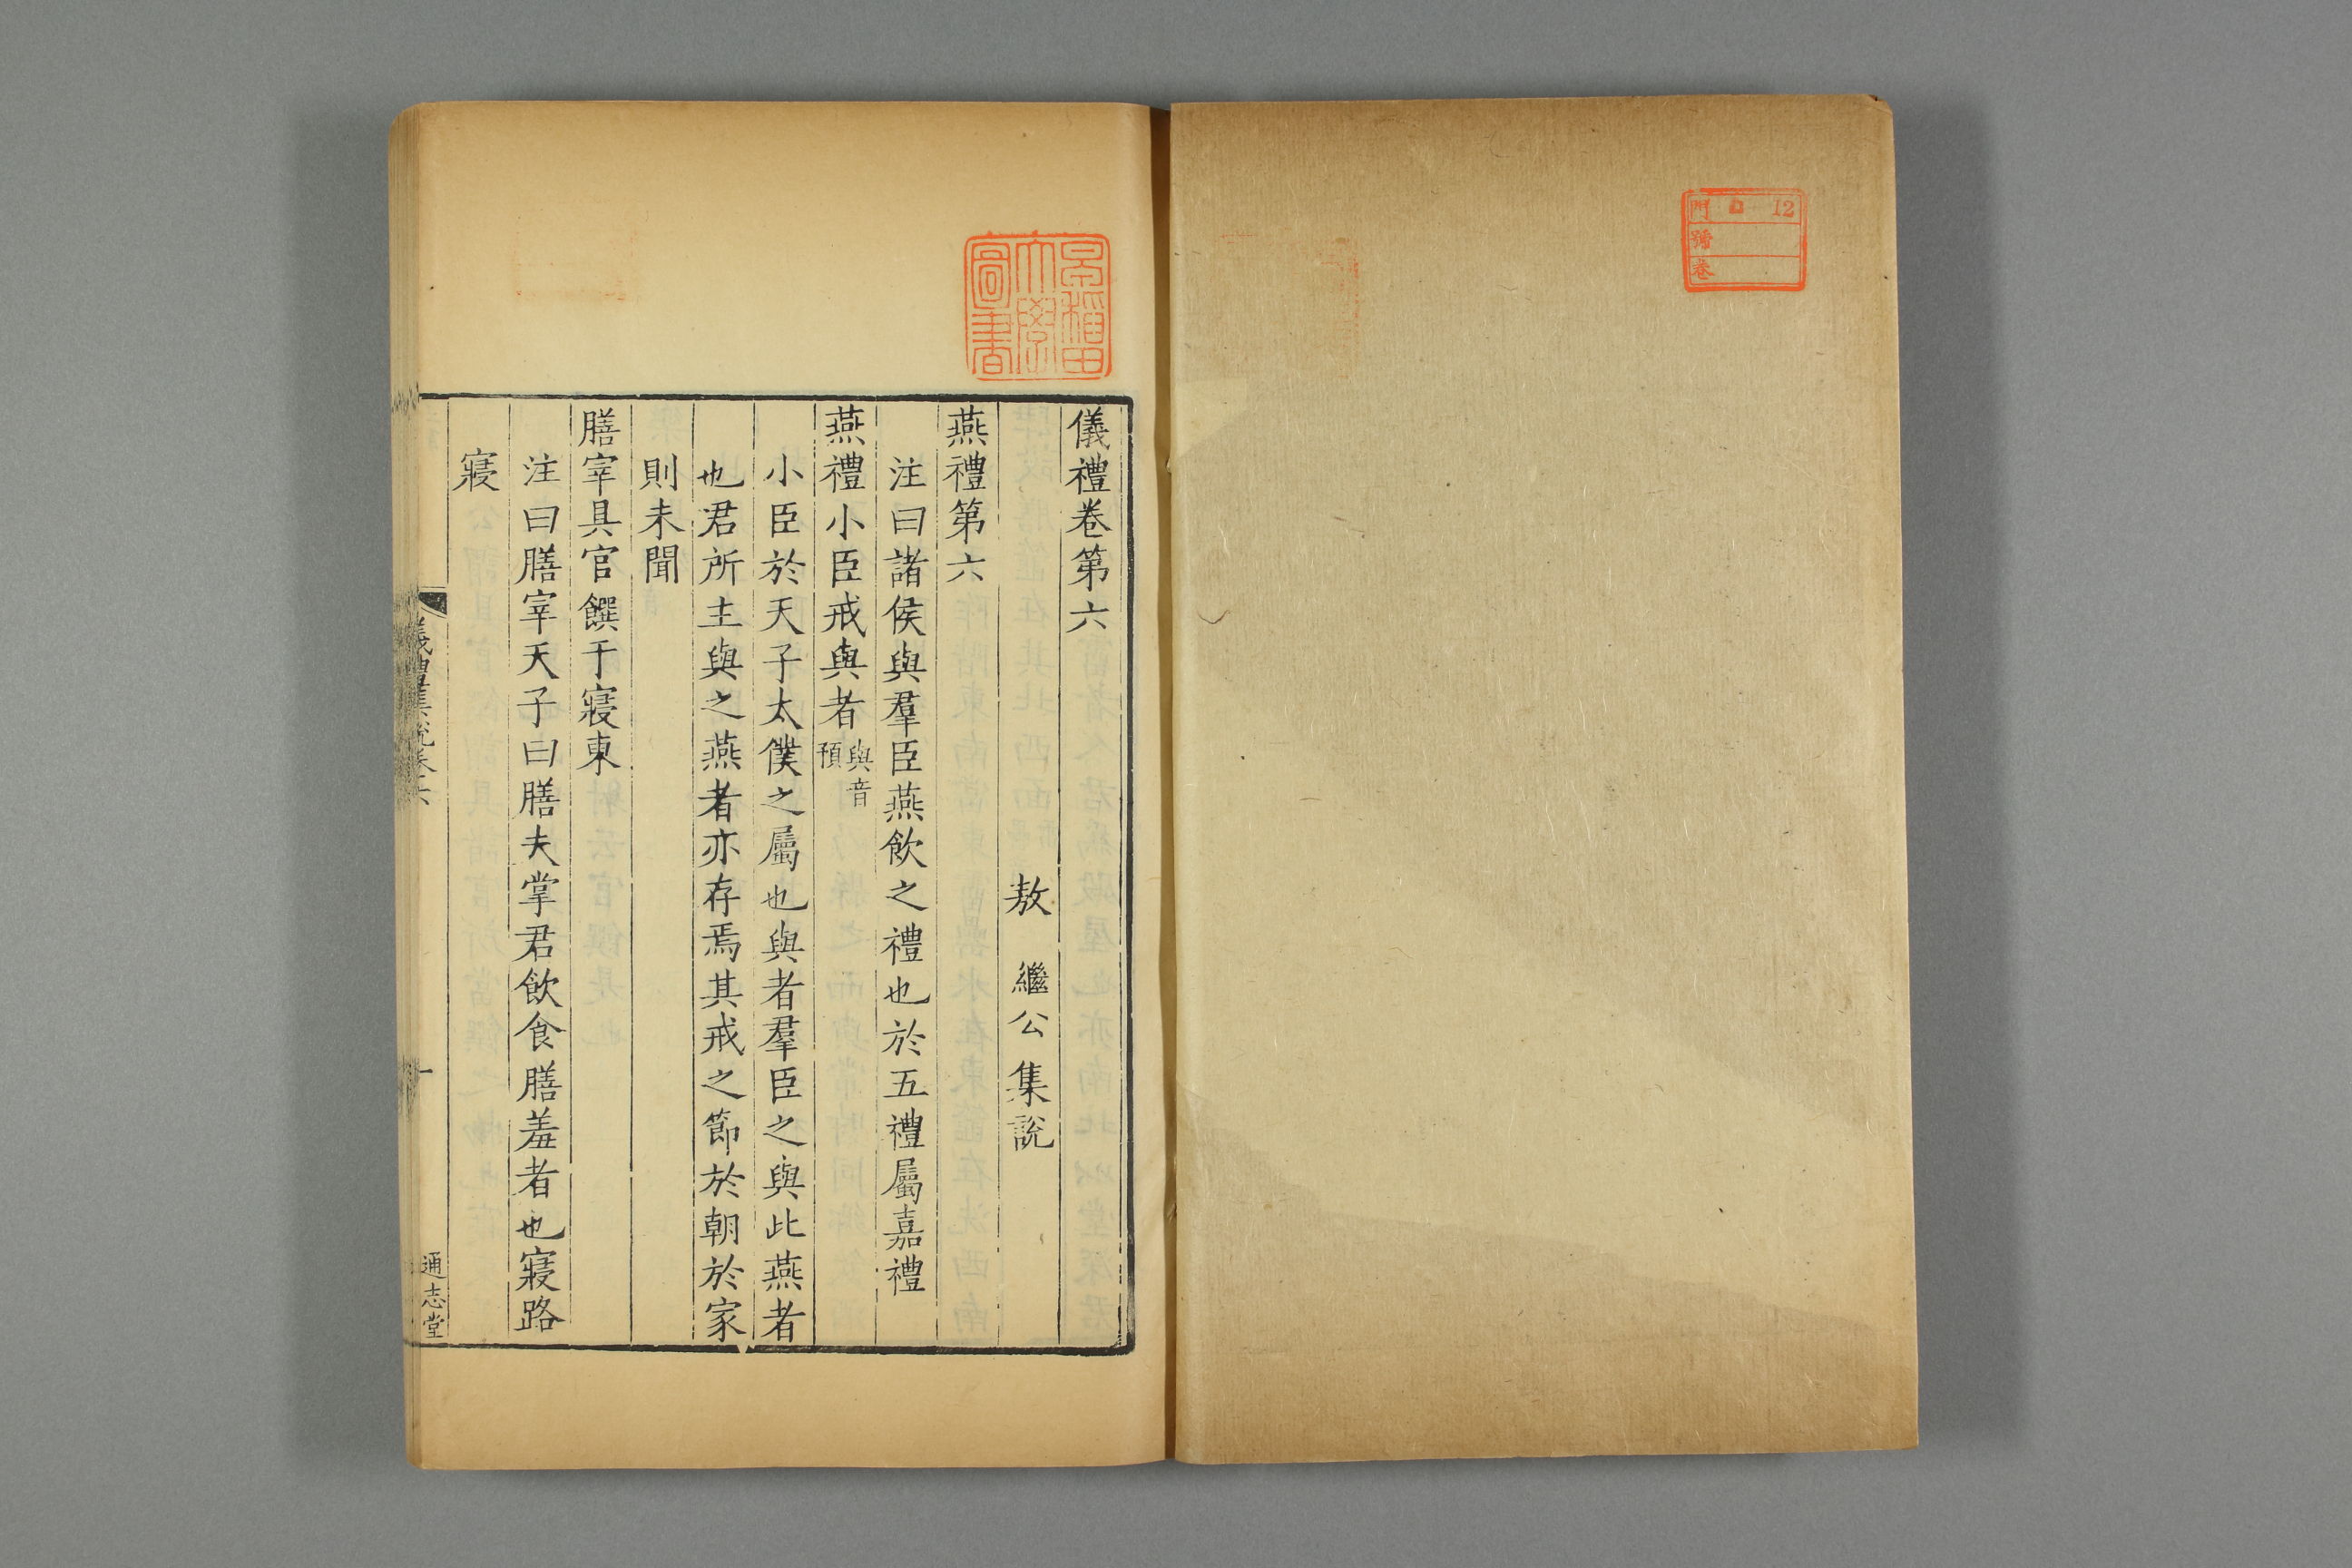 門 口 12
號
卷
早稲田
大學
圖書
儀禮卷第六
敖 繼公 集說
燕禮第六
注曰諸侯與羣臣燕飲之禮也於五禮屬嘉禮
燕禮小臣戒與者與音預
小臣於天子太僕之屬也與者羣臣之與此燕者
也君所主與之燕者亦存焉其戒之節於朝於家
則未聞
膳宰具官饌于寢東
注曰膳宰天子曰膳夫掌君飲食膳羞者也寢路
寢
儀禮集說卷六
一
通志堂